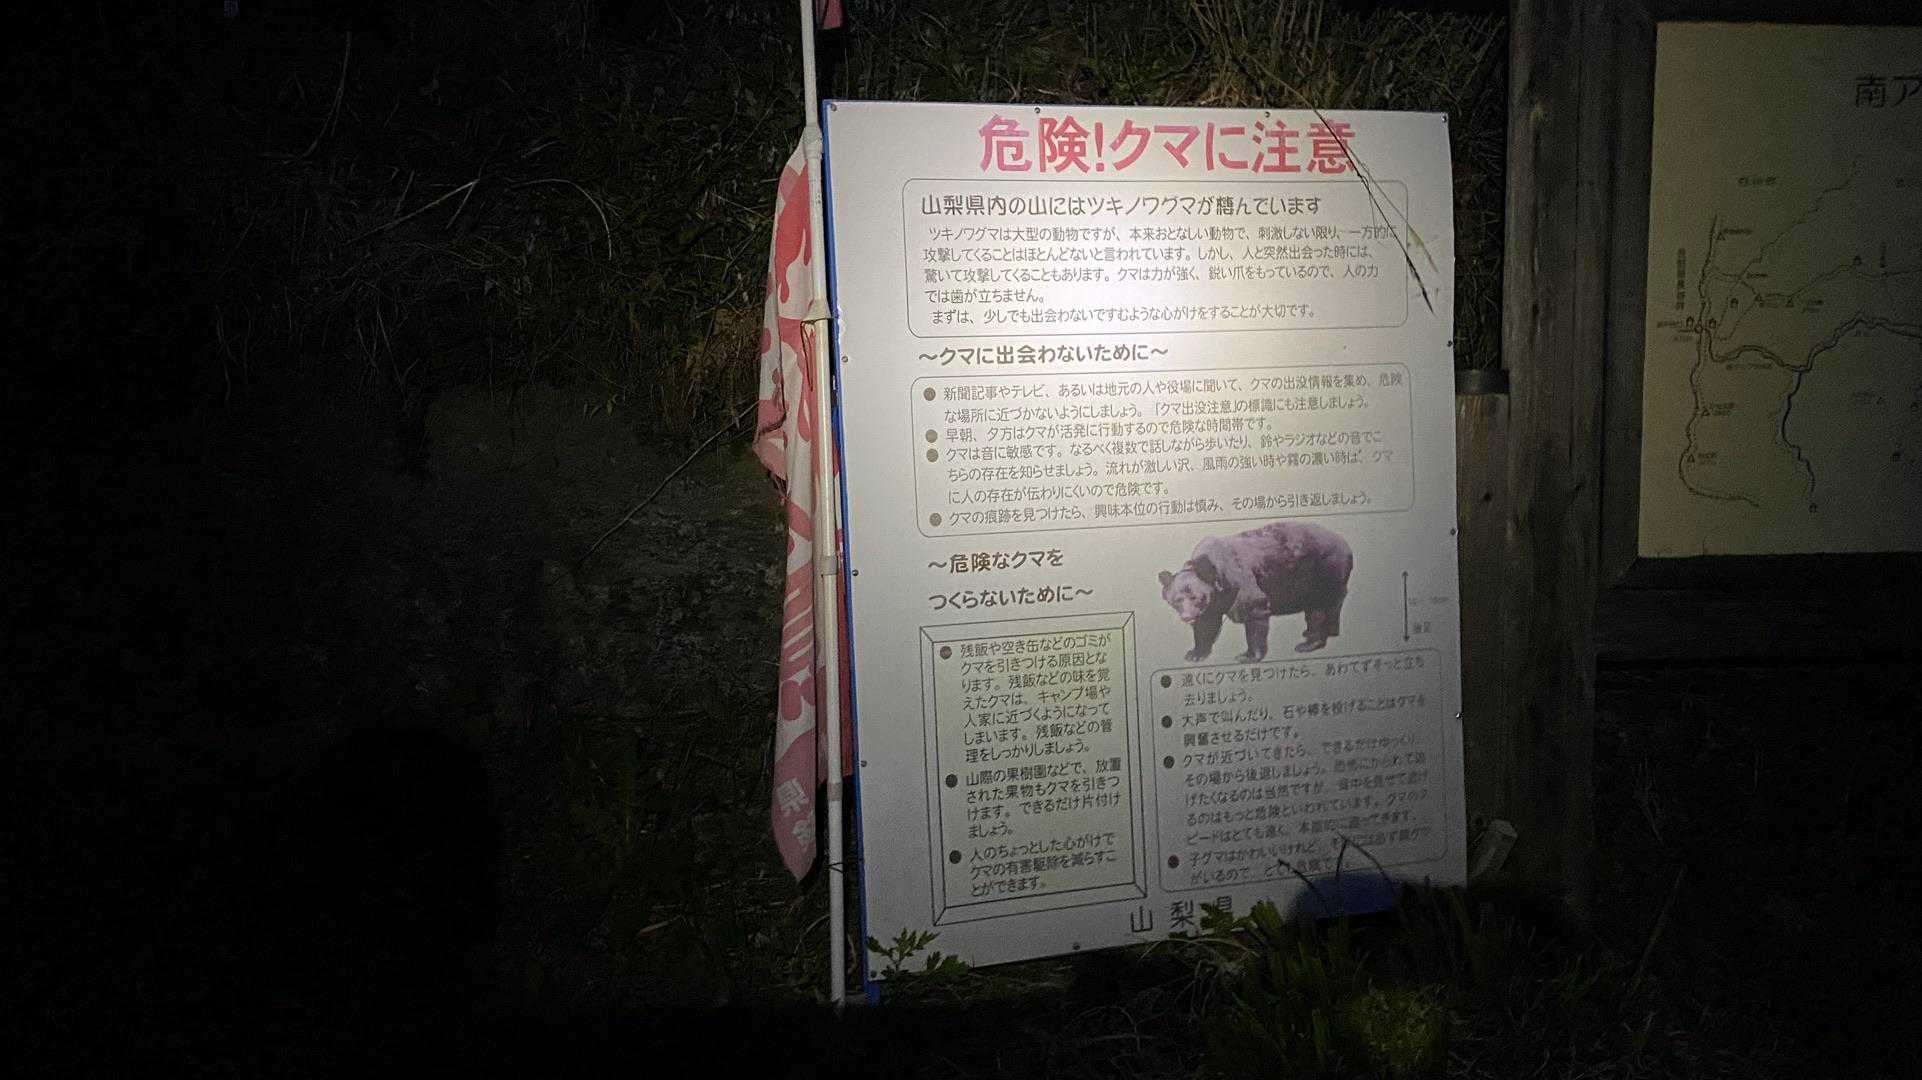 危険!クマに注意
山梨県内の山にはツキノワグマが棲んでいます
ツキノワグマは大型の動物ですが、本来おとなしい動物で、刺激しない限り、一方的に
攻撃してくることはほとんどないと言われています。しかし、人と突然出会った時には、
驚いて攻撃してくることもあります。クマは力が強く、鋭い爪をもっているので、人の力
では歯が立ちません。
まずは、少しでも出会わないですむような心がけをすることが大切です。
～クマに出会わないために～
● 新聞記事やテレビ、あるいは地元の人や役場に聞いて、クマの出没情報を集め、危険
な場所に近づかないようにしましょう。「クマ出没注意」の標識にも注意しましょう。
● 早朝、夕方はクマが活発に行動するので危険な時間帯です。
● クマは音に敏感です。なるべく複数で話しながら歩いたり、鈴やラジオなどの音でこ
ちらの存在を知らせましょう。流れが激しい沢、風雨の強い時や霧の濃い時は、クマ
に人の存在が伝わりにくいので危険です。
● クマの痕跡を見つけたら、興味本位の行動は慎み、その場から引き返しましょう。
～危険なクマを
つくらないために～
● 残飯や空き缶などのゴミが
クマを引きつける原因とな
ります。残飯などの味を覚
えたクマは、キャンプ場や
人家に近づくようになって
しまいます。残飯などの管
理をしっかりしましょう。
● 山際の果樹園などで、放置
された果物もクマを引きつ
けます。できるだけ片付け
ましょう。
● 人のちょっとした心がけで
クマの有害駆除を減らすこ
とができます。
● 遠くにクマを見つけたら、あわてずそっと立ち
去りましょう。
● 大声で叫んだり、石や棒を投げることはクマを
興奮させるだけです。
● クマが近づいてきたら、できるだけゆっくり、
その場から後退しましょう。恐怖にかられて逃
げたくなるのは当然ですが、背中を見せて逃げ
るのはもっと危険といわれています。クマのス
ピードはとても速く、本能的に追ってきます。
● 子グマはかわいいけれど、
がいるので、とても危険で
山梨県
南ア